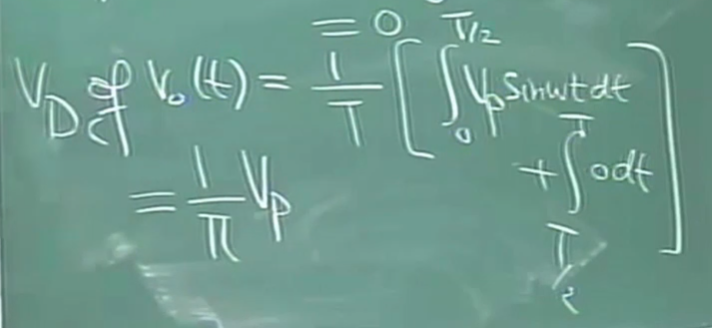 = 0
V_DC of V_o(t) = 1/T [ ∫_0^{T/2} V_p sinωt dt
+ ∫_{T/2}^{T} 0 dt ]
= 1/π V_p